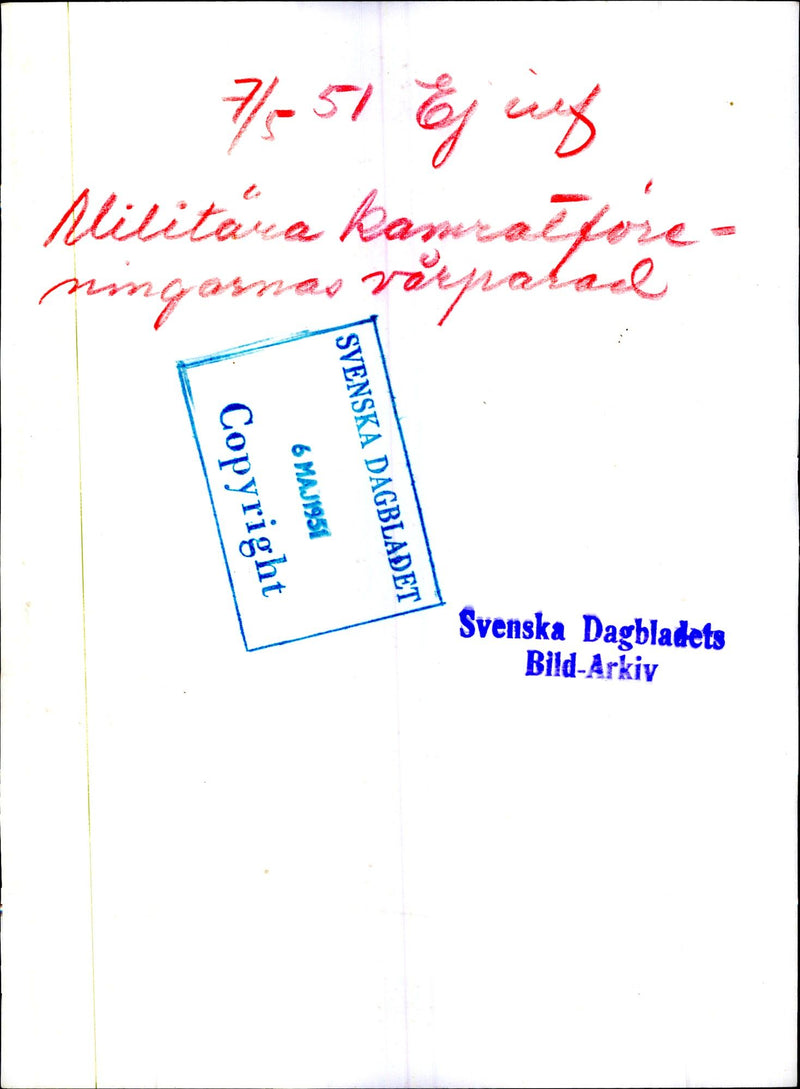 7/5 51 Ej inf
Militära kamratföre-
ningarnas vårparad
SVENSKA DAGBLADET
6 MAJ 1951
Copyright
Svenska Dagbladets
Bild-Arkiv